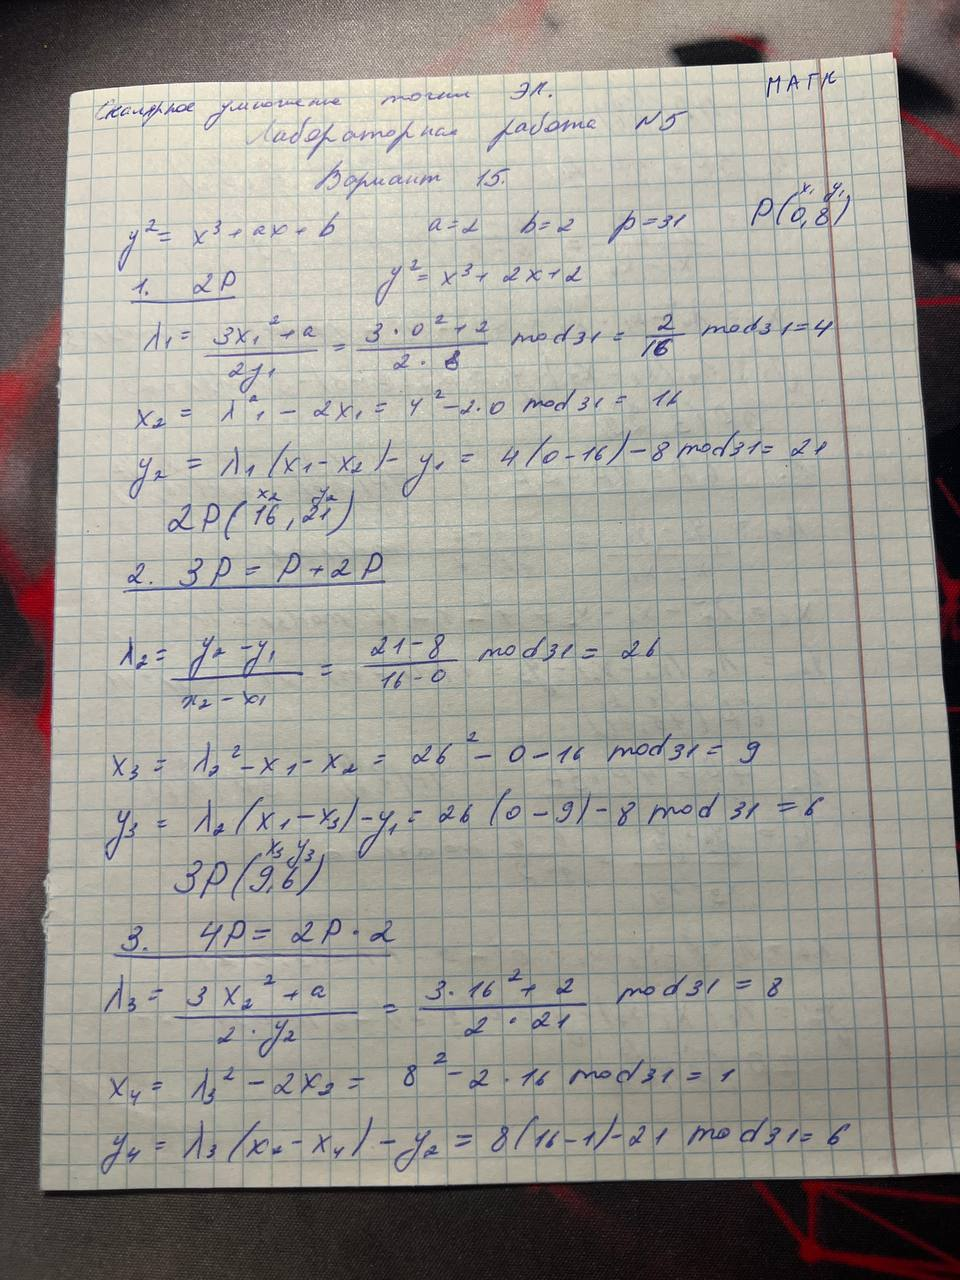 МАГК
Скалярное умножение точки ЭК.
Лабораторная работа №5
Вариант 15.
y² = x³ + ax + b a=2 b=2 p=31 P(0,8) x₁ y₁
1. 2P y² = x³ + 2x + 2
λ₁ = (3x₁² + a)/(2y₁) = (3·0² + 2)/(2·8) mod 31 = 2/16 mod 31 = 4
x₂ = λ₁² - 2x₁ = 4² - 2·0 mod 31 = 16
y₂ = λ₁(x₁ - x₂) - y₁ = 4(0-16) - 8 mod 31 = 21
x₂ y₂
2P(16, 21)
2. 3P = P + 2P
λ₂ = (y₂ - y₁)/(x₂ - x₁) = (21-8)/(16-0) mod 31 = 26
x₃ = λ₂² - x₁ - x₂ = 26² - 0 - 16 mod 31 = 9
y₃ = λ₂(x₁ - x₃) - y₁ = 26(0-9) - 8 mod 31 = 6
x₃ y₃
3P(9,6)
3. 4P = 2P·2
λ₃ = (3x₂² + a)/(2·y₂) = (3·16² + 2)/(2·21) mod 31 = 8
x₄ = λ₃² - 2x₂ = 8² - 2·16 mod 31 = 1
y₄ = λ₃(x₂ - x₄) - y₂ = 8(16-1) - 21 mod 31 = 6